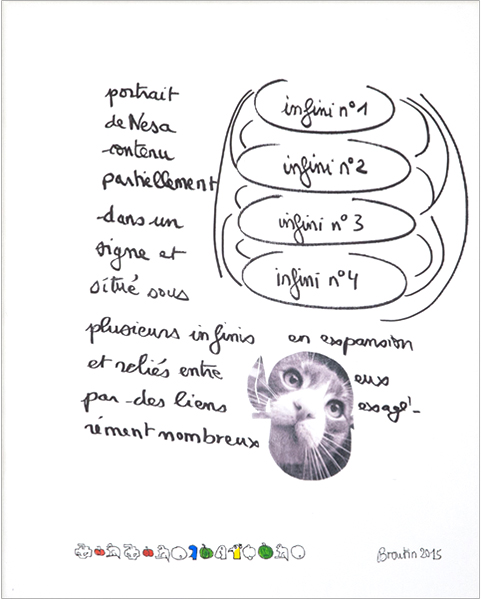 portrait
de Nesa
contenu
partiellement
dans un
signe et
situé sous
plusieurs infinis en expansion
et reliés entre eux
par des liens exagé-
rément nombreux
infini n°1
infini n°2
infini n°3
infini n°4
Broutin 2015